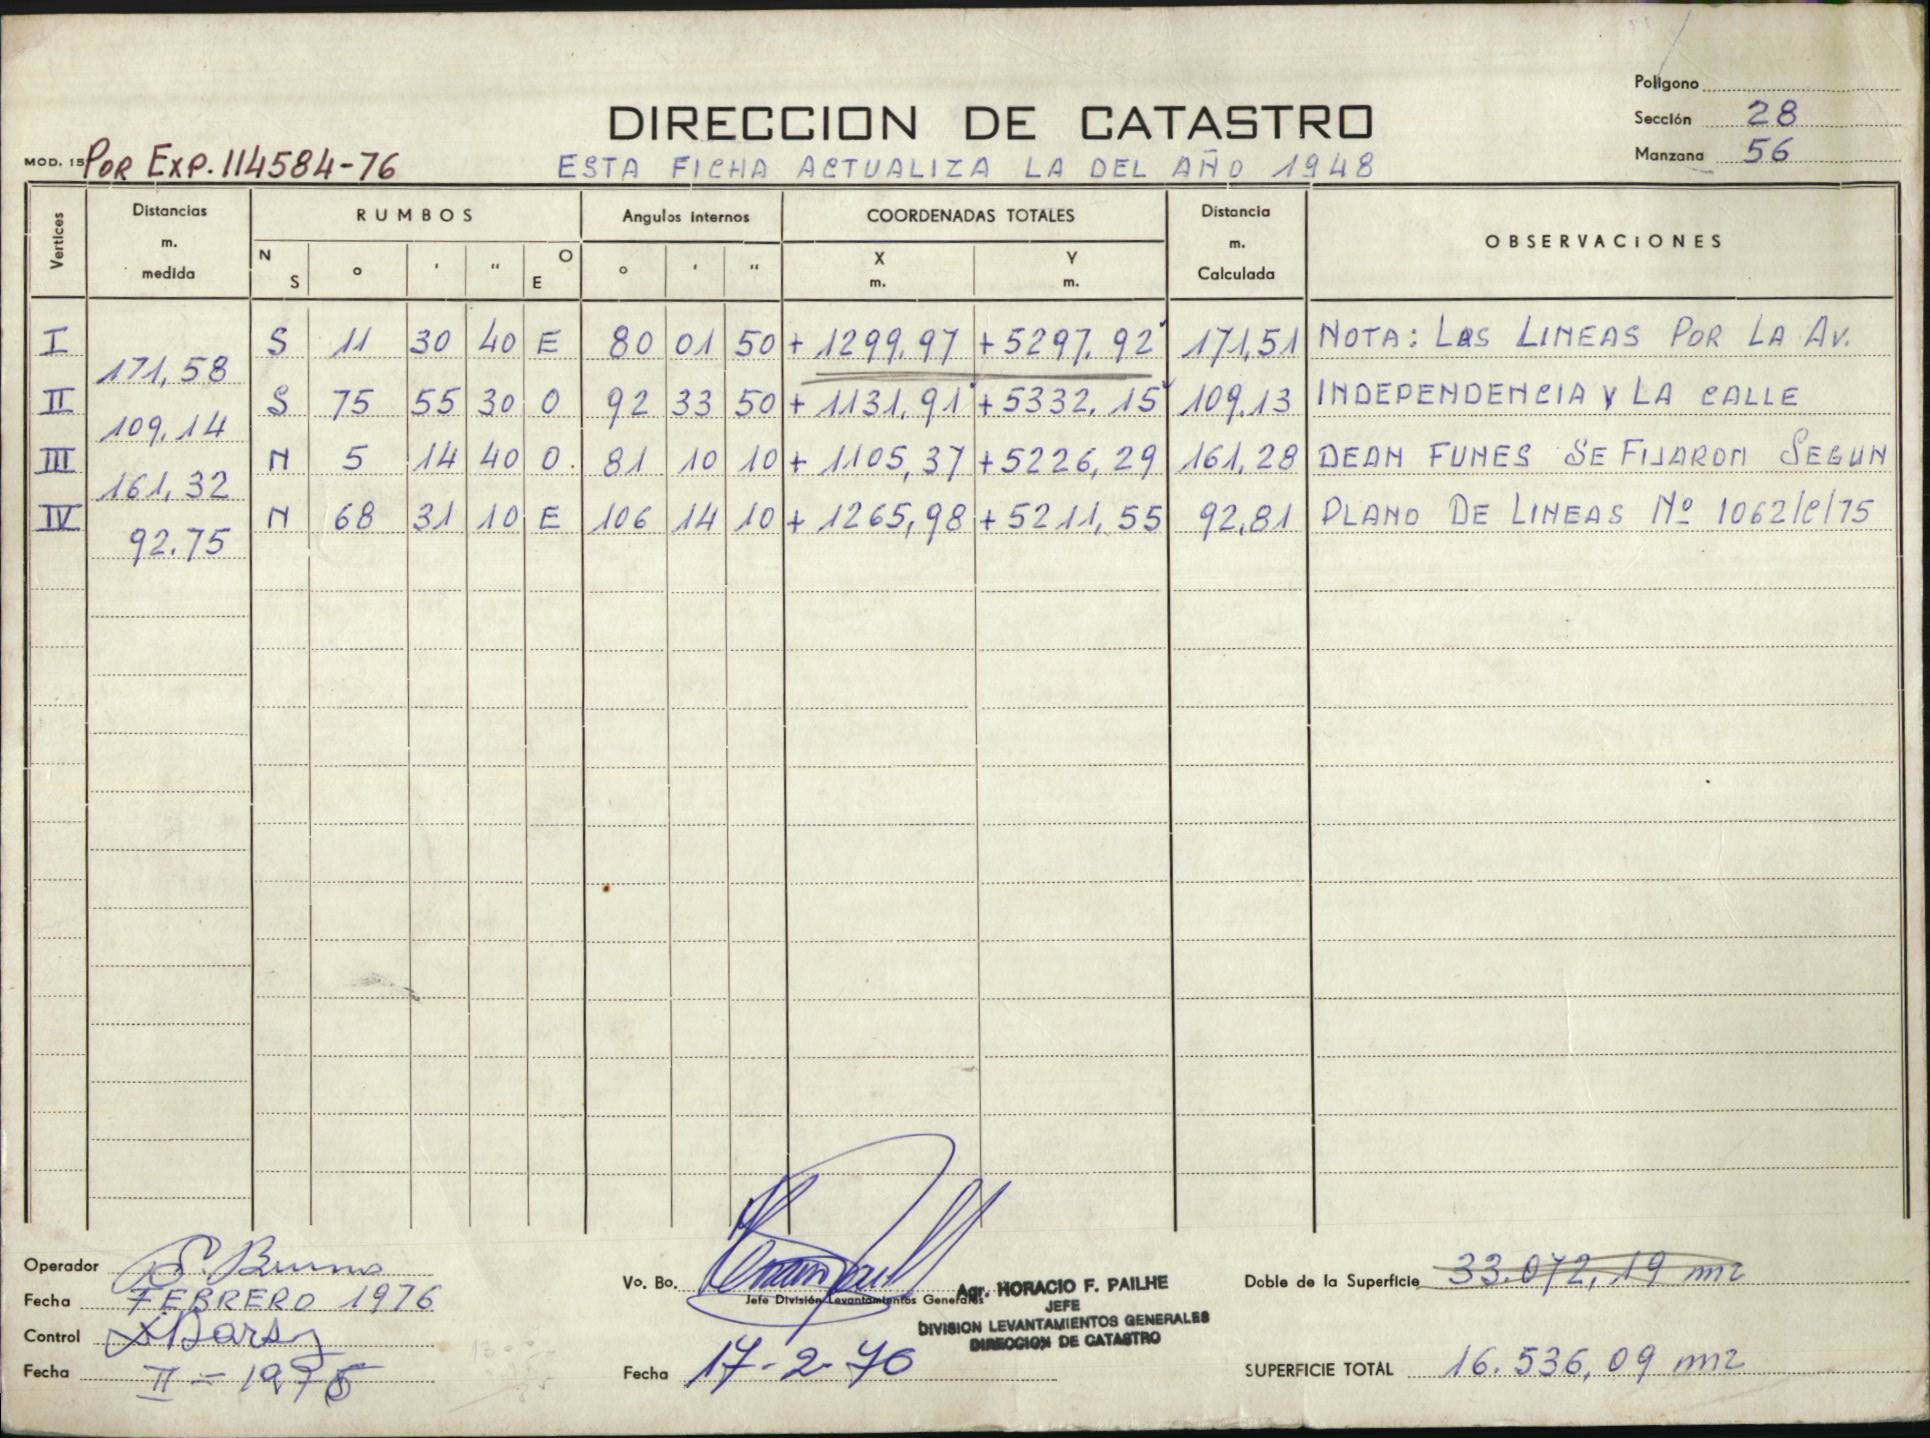 Polígono
DIRECCION DE CATASTRO
Sección 28
MOD. 15 POR EXP. 114584-76
ESTA FICHA ACTUALIZA LA DEL AÑO 1948
Manzana 56
Vertices Distancias m. medida RUMBOS Angulos internos COORDENADAS TOTALES Distancia m. Calculada OBSERVACIONES
N S o ' " O E o ' " X m. Y m.
I S 11 30 40 E 80 01 50 + 1299,97 + 5297,92 171,51 NOTA: LAS LINEAS POR LA AV.
171,58
II S 75 55 30 O 92 33 50 + 1131,91 + 5332,15 109,13 INDEPENDENCIA Y LA CALLE
109,14
III N 5 14 40 O. 81 10 10 + 1105,37 + 5226,29 161,28 DEAN FUNES SE FIJARON SEGUN
161,32
IV N 68 31 10 E 106 14 10 + 1265,98 + 5211,55 92,81 PLANO DE LINEAS Nº 1062/C/75
92.75
Operador S. Bruno
Fecha FEBRERO 1976
Control
Fecha II - 1976
Vo. Bo.
Jefe División Levantamientos Generales
Agr. HORACIO F. PAILHE
JEFE
DIVISION LEVANTAMIENTOS GENERALES
DIRECCION DE CATASTRO
Fecha 17-2-76
Doble de la Superficie 33.072,19 m2
SUPERFICIE TOTAL 16.536,09 m2